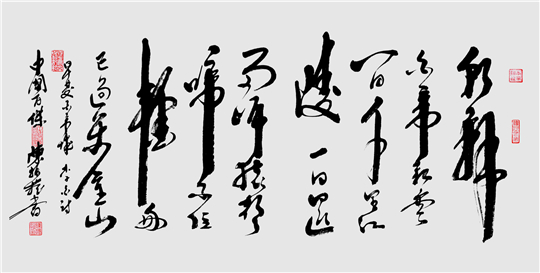 朝辭
白帝彩雲
間千里江
陵一日還
兩岸猿聲
啼不住
輕舟
已過萬重山
早發白帝城 李白詩
中國百傑 陳 書